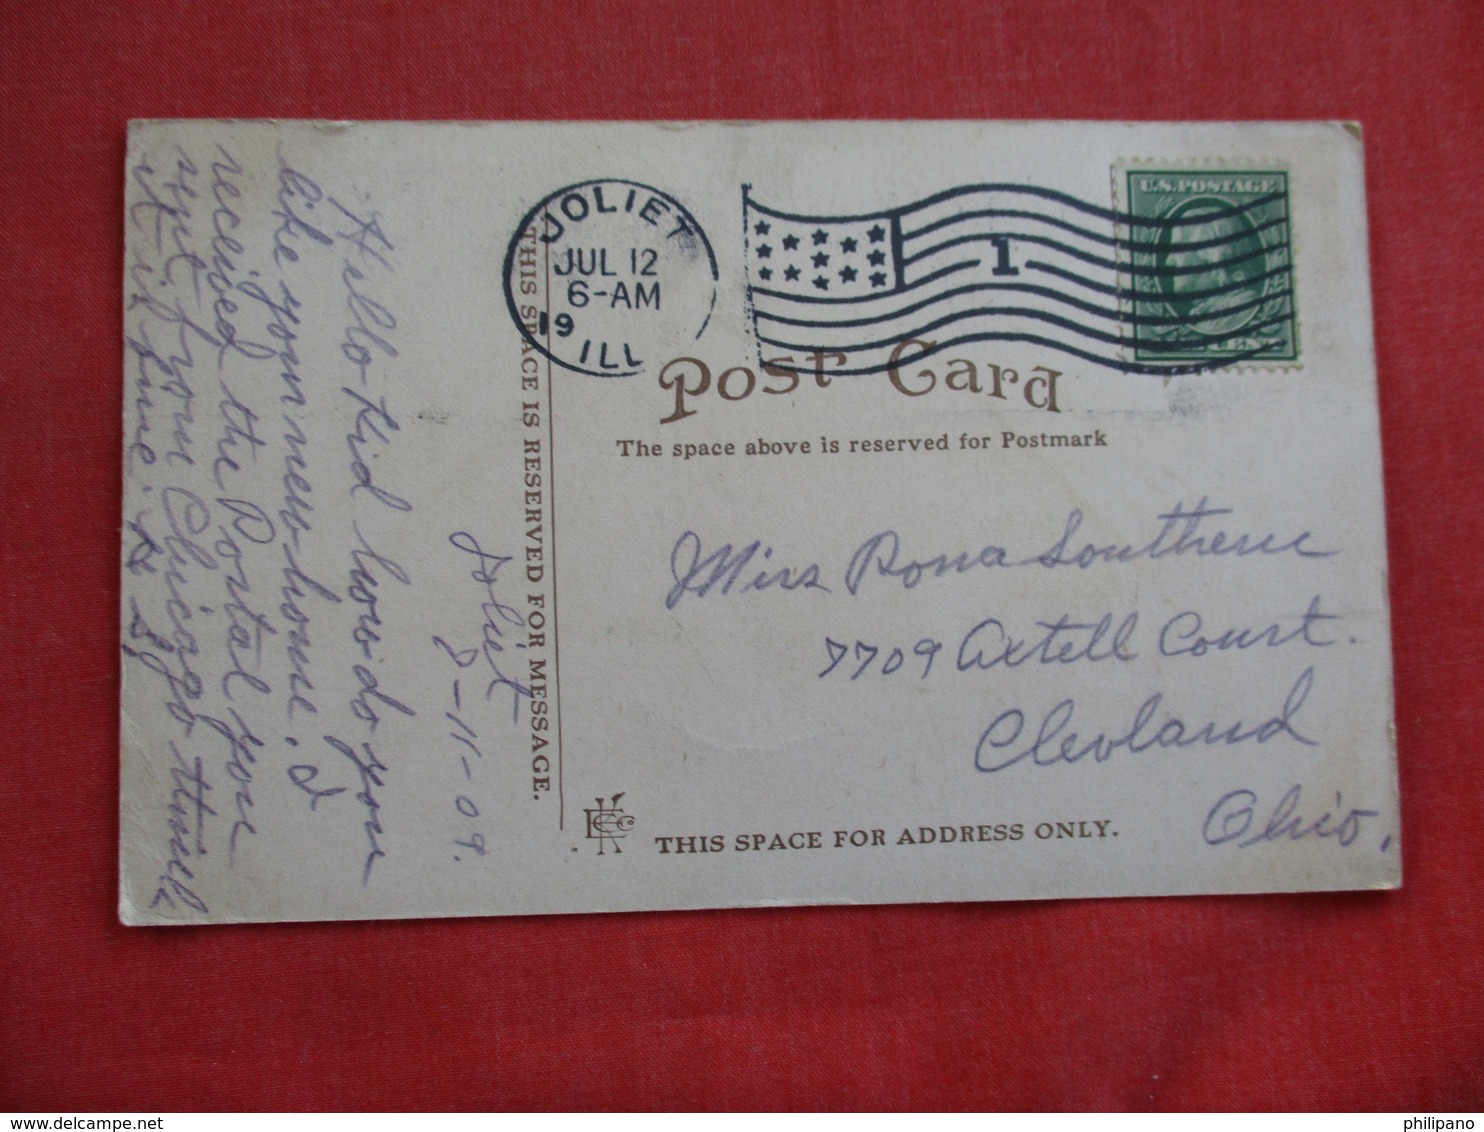 JOLIET
JUL 12
6-AM
19
ILL
1
U.S. POSTAGE
Post Card
The space above is reserved for Postmark
THIS SPACE IS RESERVED FOR MESSAGE.
Joliet
7-11-09.
Hello Kid how do you
like your new house. I
received the Postal you
sent from Chicago think
it is fine. H. S.
Miss Rona Southern
7709 Axtell Court.
Clevland
Ohio.
THIS SPACE FOR ADDRESS ONLY.
philipano